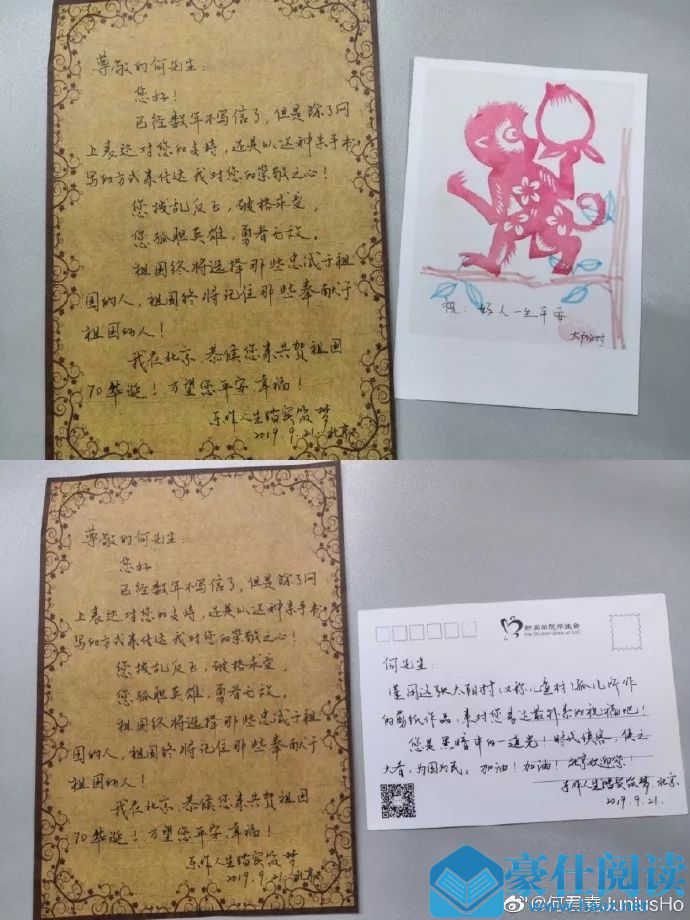 尊敬的何先生：
您好！
已经数年不写信了，但是除了网
上表达对您的支持，还是以这种亲手书
写的方式来传达我对您的崇敬之心！
您拨乱反正，破格求变，
您孤胆英雄，勇者无敌。
祖国终将选择那些忠诚于祖
国的人，祖国终将记住那些奉献于
祖国的人！
我在北京，恭候您来共贺祖国
70华诞！万望您平安、幸福！
2019.9.21.北京
祝：好人一生平安
尊敬的何先生：
您好！
已经数年不写信了，但是除了网
上表达对您的支持，还是以这种亲手书
写的方式来传达我对您的崇敬之心！
您拨乱反正，破格求变，
您孤胆英雄，勇者无敌。
祖国终将选择那些忠诚于祖
国的人，祖国终将记住那些奉献于
祖国的人！
我在北京，恭候您来共贺祖国
70华诞！万望您平安、幸福！
2019.9.21.北京
新闻学院学生会
何先生：
谨用这张太阳村（又称儿童村）孤儿所作
的剪纸作品，来对您表达最朴素的祝福吧！
您是黑暗中的一道光！时代侠客，侠之
大者，为国为民。加油！加油！北京欢迎您！
北京
2019.9.21.
豪仕阅读
@何君尧JuniusHo